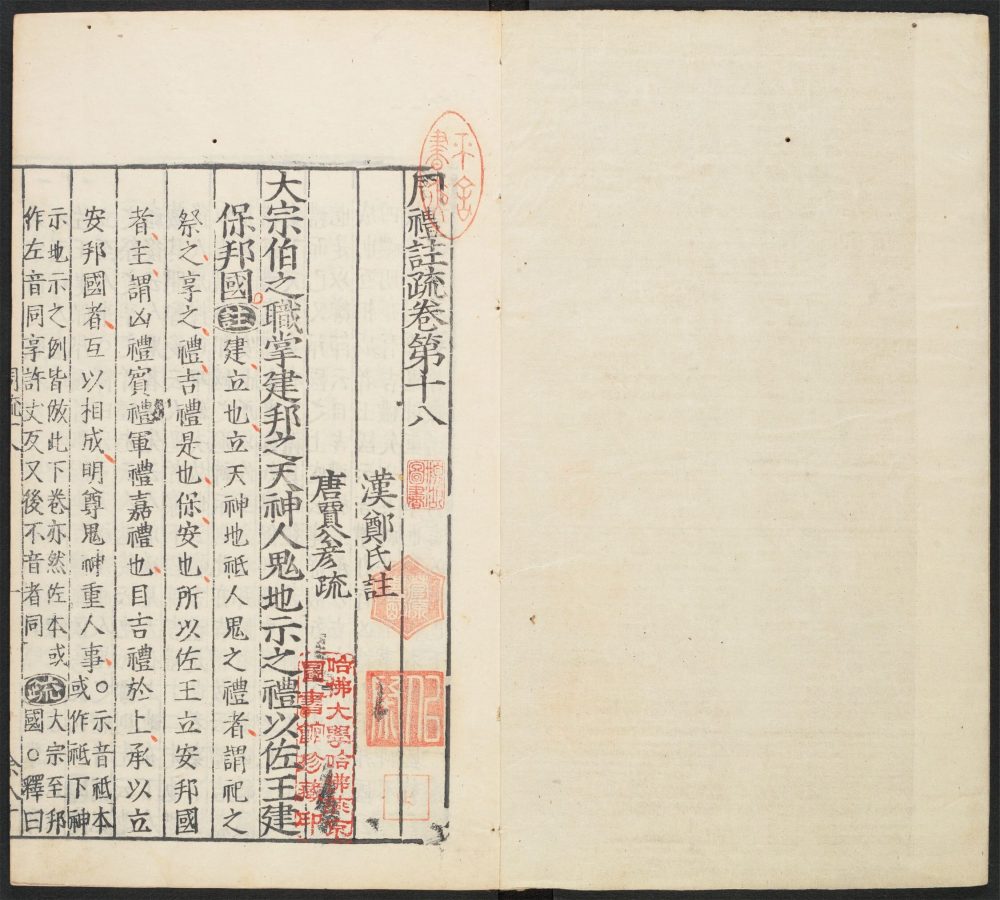 周禮註疏卷第十八
漢鄭氏註
唐賈公彥疏
大宗伯之職掌建邦之天神人鬼地示之禮以佐王建
保邦國註建立也立天神地祇人鬼之禮者謂祀之
祭之享之禮吉禮是也保安也所以佐王立安邦國
者主謂凶禮賓禮軍禮嘉禮也目吉禮於上承以立
安邦國者互以相成明尊鬼神重人事○示音祇本
或作祇下神
示地示之例皆倣此下卷亦然佐本或
作左音同享許丈反又後不音者同
疏大宗至邦
國○釋曰
哈佛大學哈佛燕京
圖書館珍藏印